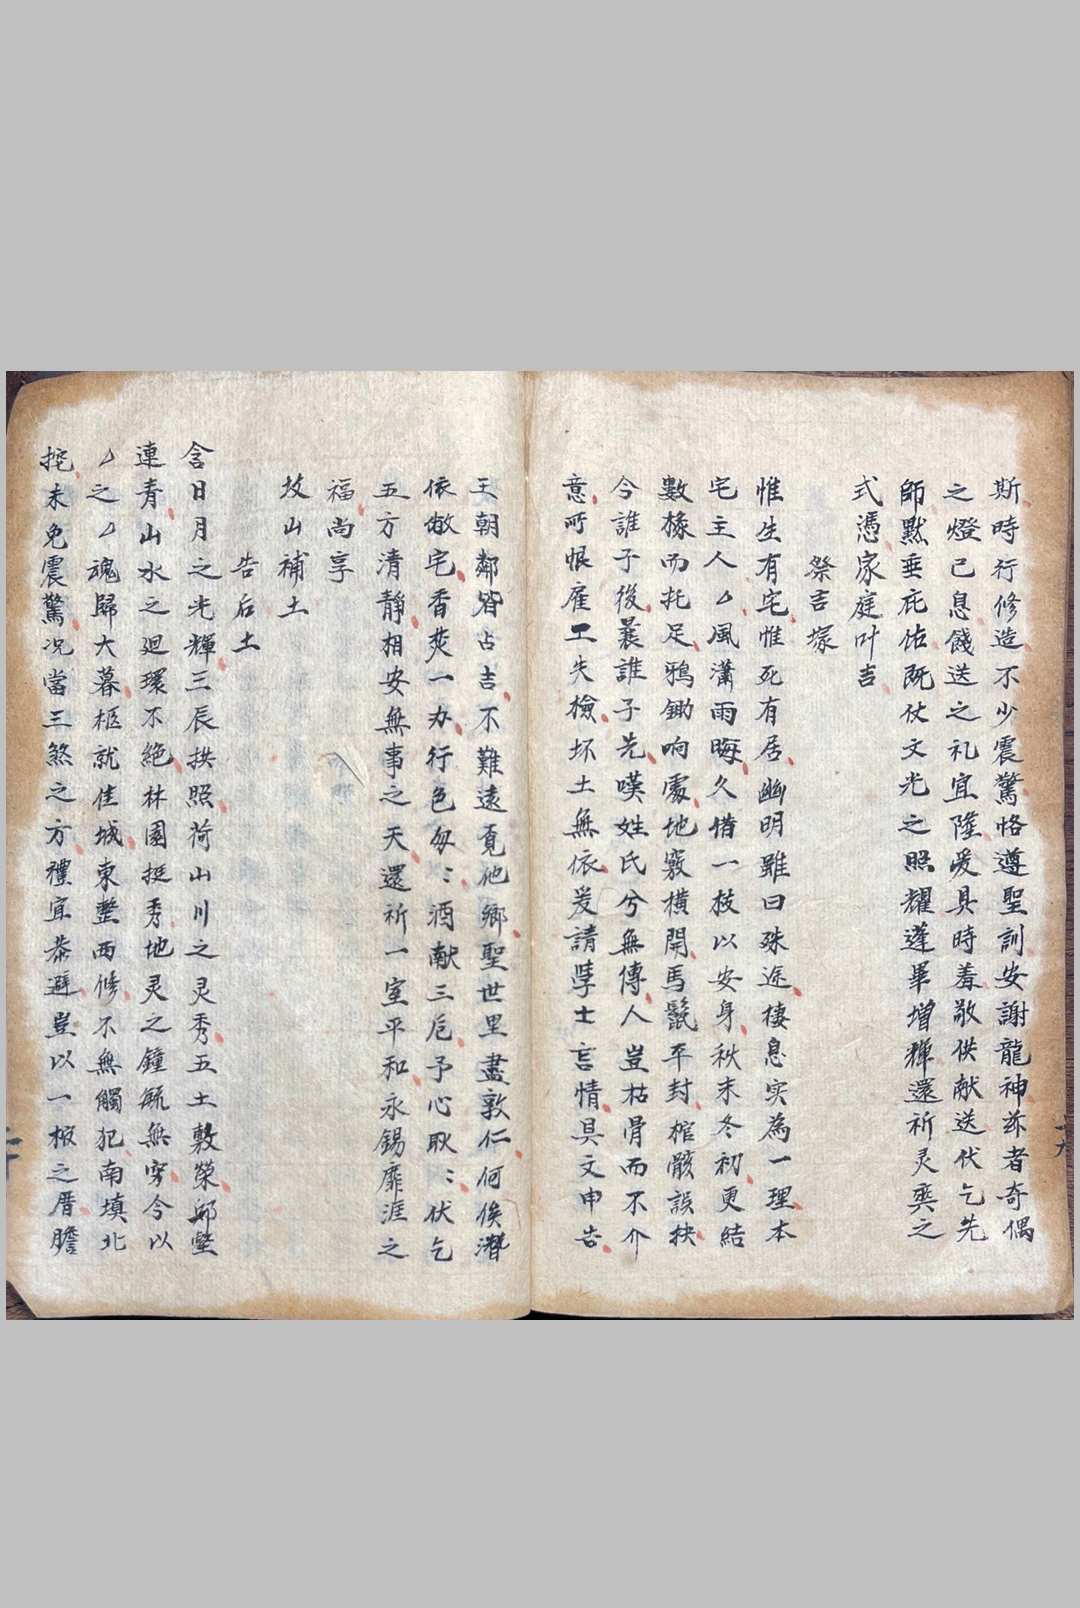 斯時行修造不少震驚恪遵聖訓安謝龍神茲者奇偶
之燈已息餞送之礼宜隆爰具時羞敬供献送伏乞先
師默垂庇佑既仗文光之照耀蓬蓽增輝還祈灵爽之
式憑家庭叶吉
祭吉塚
惟生有宅惟死有居幽明雖曰殊途棲息实為一理本
宅主人厶風瀟雨晦久借一枝以安身秋末冬初更結
數椽而托足鴉鋤响處地竅橫開馬鬣平封棺骸誤抉
今誰子後曩誰子先嘆姓氏兮無傳人豈枯骨而不介
意所恨雇工失檢坏土無依爰請孛士言情具文申告
王朝鄰皆占吉不難遠覓他鄉聖世里盡敦仁何俟潛
依敝宅香爇一办行色匆〻酒献三卮予心耿〻伏乞
五方清靜相安無事之天還祈一室平和永錫靡涯之
福尚享
坟山補土
告后土
含日月之光輝三辰拱照荷山川之灵秀五土敷榮邱壑
連青山水之迴環不絕林園挺秀地灵之鐘毓無穷今以
厶之厶魂歸大暮柩就佳城東鏨西修不無觸犯南填北
挖未免震驚况當三煞之方禮宜恭避豈以一椒之厝瞻
十九
二十